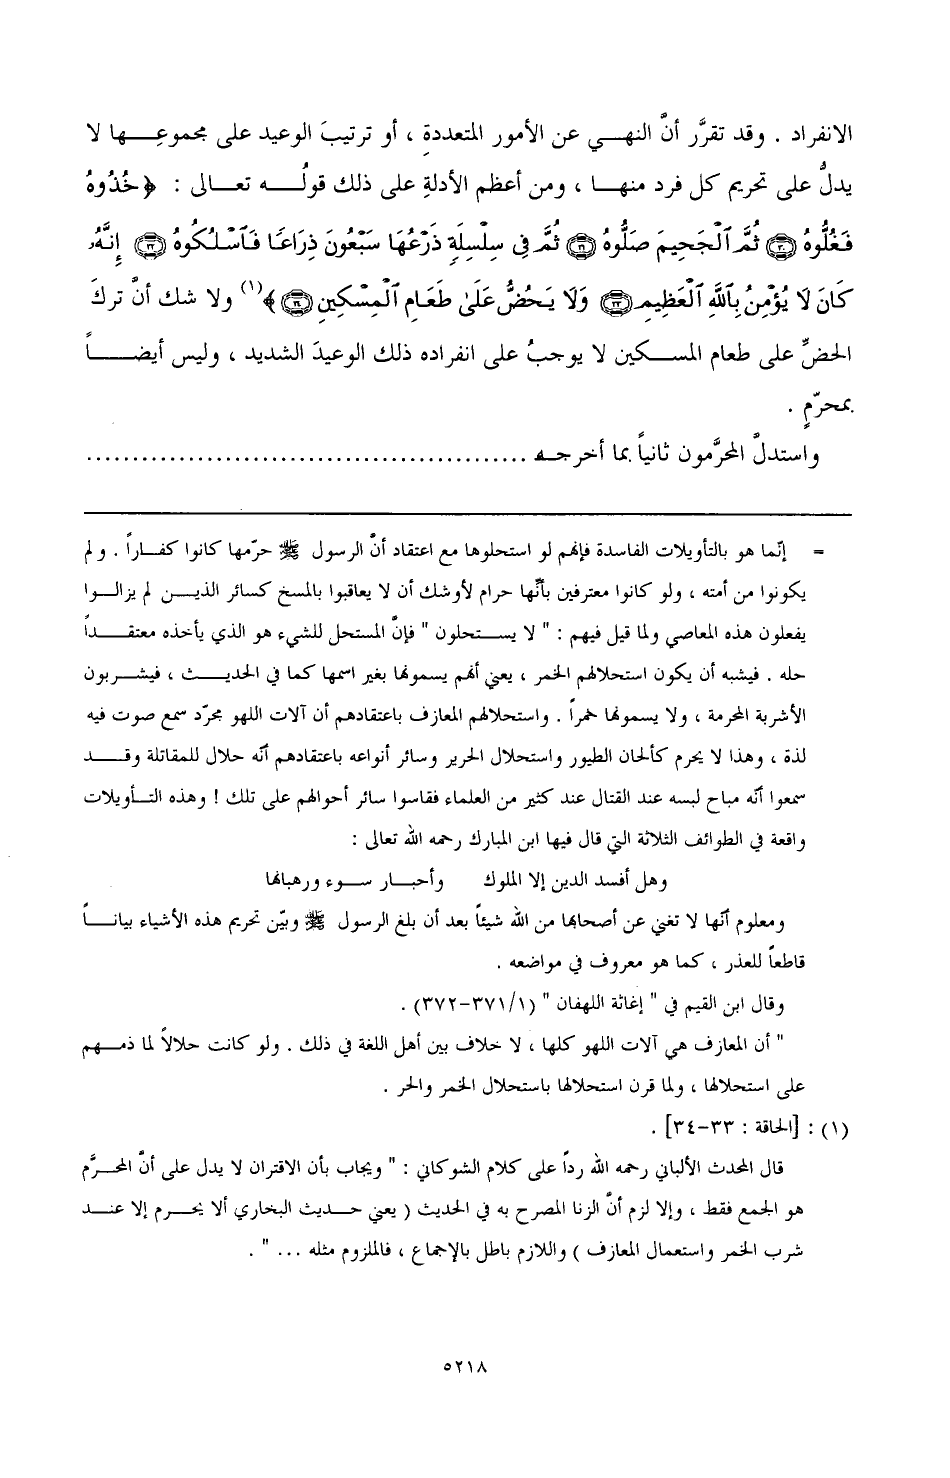 الانفراد . وقد تقرَّر أنَّ النهـي عن الأمور المتعددةِ ، أو ترتيبَ الوعيد على مجموعِـها لا
يدلُّ على تحريم كل فرد منها ، ومن أعظم الأدلةِ على ذلك قولُه تعالى : ﴿ خُذُوهُ
فَغُلُّوهُ ۝٣٠ ثُمَّ ٱلْجَحِيمَ صَلُّوهُ ۝٣١ ثُمَّ فِى سِلْسِلَةٍ ذَرْعُهَا سَبْعُونَ ذِرَاعًا فَٱسْلُكُوهُ ۝٣٢ إِنَّهُۥ
كَانَ لَا يُؤْمِنُ بِٱللَّهِ ٱلْعَظِيمِ ۝٣٣ وَلَا يَحُضُّ عَلَىٰ طَعَامِ ٱلْمِسْكِينِ ۝٣٤ ﴾(١) ولا شك أنَّ تركَ
الحضِّ على طعام المسكين لا يوجبُ على انفراده ذلك الوعيدَ الشديد ، وليس أيضاً
بمحرّمٍ .
واستدلَّ المحرَّمون ثانياً بما أخرجه ...............................................
= إنّما هو بالتأويلات الفاسدة فإنهم لو استحلوها مع اعتقاد أنَّ الرسول ﷺ حرّمها كانوا كفاراً . ولم
يكونوا من أمته ، ولو كانوا معترفين بأنّها حرام لأوشك أن لا يعاقبوا بالمسخ كسائر الذين لم يزالوا
يفعلون هذه المعاصي ولما قيل فيهم : " لا يستحلون " فإنَّ المستحل للشيء هو الذي يأخذه معتقداً
حله . فيشبه أن يكون استحلالهم الخمر ، يعني أنهم يسمونها بغير اسمها كما في الحديث ، فيشربون
الأشربة المحرمة ، ولا يسمونها خمراً . واستحلالهم المعازف باعتقادهم أن آلات اللهو مجرّد سمع صوت فيه
لذة ، وهذا لا يحرم كألحان الطيور واستحلال الحرير وسائر أنواعه باعتقادهم أنّه حلال للمقاتلة وقد
سمعوا أنّه مباح لبسه عند القتال عند كثير من العلماء فقاسوا سائر أحوالهم على تلك ! وهذه التأويلات
واقعة في الطوائف الثلاثة التي قال فيها ابن المبارك رحمه الله تعالى :
وهل أفسد الدين إلا الملوك وأحبار سوء ورهبانها
ومعلوم أنّها لا تغني عن أصحابها من الله شيئاً بعد أن بلغ الرسول ﷺ وبيّن تحريم هذه الأشياء بياناً
قاطعاً للعذر ، كما هو معروف في مواضعه .
وقال ابن القيم في " إغاثة اللهفان " (٣٧١/١-٣٧٢) .
" أن المعازف هي آلات اللهو كلها ، لا خلاف بين أهل اللغة في ذلك . ولو كانت حلالاً لما ذمهم
على استحلالها ، ولما قرن استحلالها باستحلال الخمر والحر .
(١) : [الحاقة : ٣٣-٣٤] .
قال المحدث الألباني رحمه الله رداً على كلام الشوكاني : " ويجاب بأن الاقتران لا يدل على أنَّ المحرَّم
هو الجمع فقط ، وإلا لزم أنَّ الزنا المصرح به في الحديث ( يعني حديث البخاري ألا يحرم إلا عند
شرب الخمر واستعمال المعازف ) واللازم باطل بالإجماع ، فالملزوم مثله ... " .
٥٢١٨